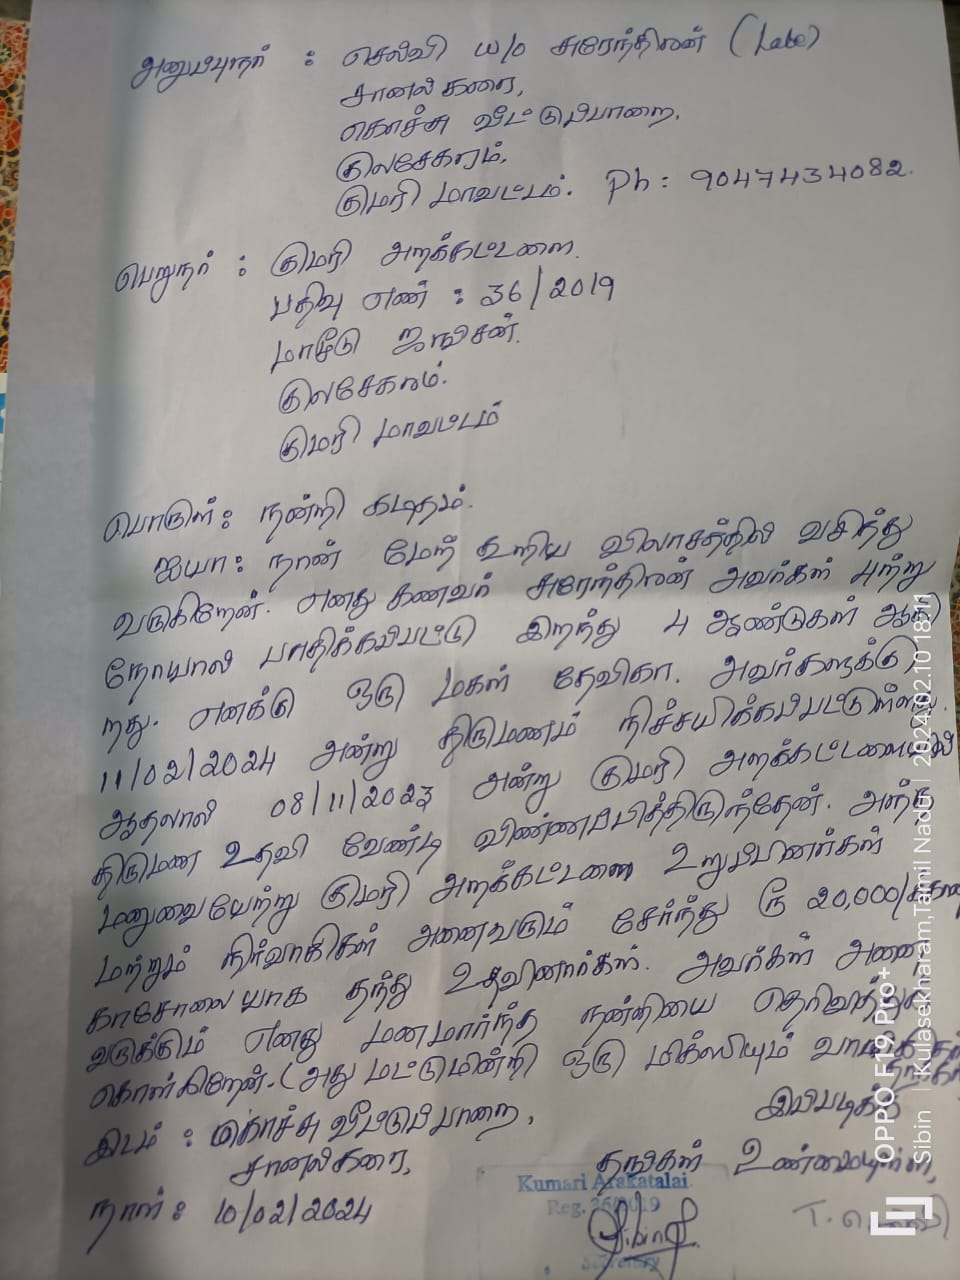 அனுப்புநர் : செல்வி W/o சுரேந்திரன் (Late)
சானல்கரை,
கொச்சு வீட்டுப்பாறை,
குலசேகரம்,
குமரி மாவட்டம். Ph : 9047434082.
பெறுநர் : குமரி அறக்கட்டளை.
பதிவு எண் : 36/2019
மாமூடு ஜங்சன்.
குலசேகரம்.
குமரி மாவட்டம்
பொருள் : நன்றி கடிதம்.
ஐயா : நான் மேற் கூறிய விலாசத்தில் வசித்து
வருகிறேன். எனது கணவர் சுரேந்திரன் அவர்கள் புற்று
நோயால் பாதிக்கப்பட்டு இறந்து 4 ஆண்டுகள் ஆகி
றது. எனக்கு ஒரு மகள் தேவிகா. அவர்களுக்கு
11/02/2024 அன்று திருமணம் நிச்சயிக்கப்பட்டுள்ளது.
ஆதலால் 08/11/2023 அன்று குமரி அறக்கட்டளையில்
திருமண உதவி வேண்டி விண்ணப்பித்திருந்தேன். அந்த
மனுவையேற்று குமரி அறக்கட்டளை உறுப்பினர்கள்
மற்றும் நிர்வாகிகள் அனைவரும் சேர்ந்து ரூ 20,000/க்கான
காசோலையாக தந்து உதவினார்கள். அவர்கள் அனை
வருக்கும் எனது மனமார்ந்த நன்றியை தெரிவித்துக்
கொள்கிறேன். (அது மட்டுமின்றி ஒரு மிக்ஸியும் வாங்கி தந்
தார்கள்
இடம் : கொச்சு வீட்டுப்பாறை, இப்படிக்கு
சானல்கரை, தங்கள் உண்மையுள்ள,
நாள் : 10/02/2024
T. செல்வி
Kumari Arakatalai
Reg. 36/2019
Sibin
Secretary
OPPO F19 Pro+
Sibin | Kulasekharam,Tamil Nadu | 2024.02.10 18:11